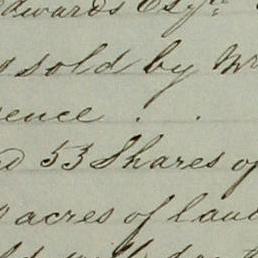 Edwards Esqr.
sold by Mr
ence . .
53 Shares of
acres of land